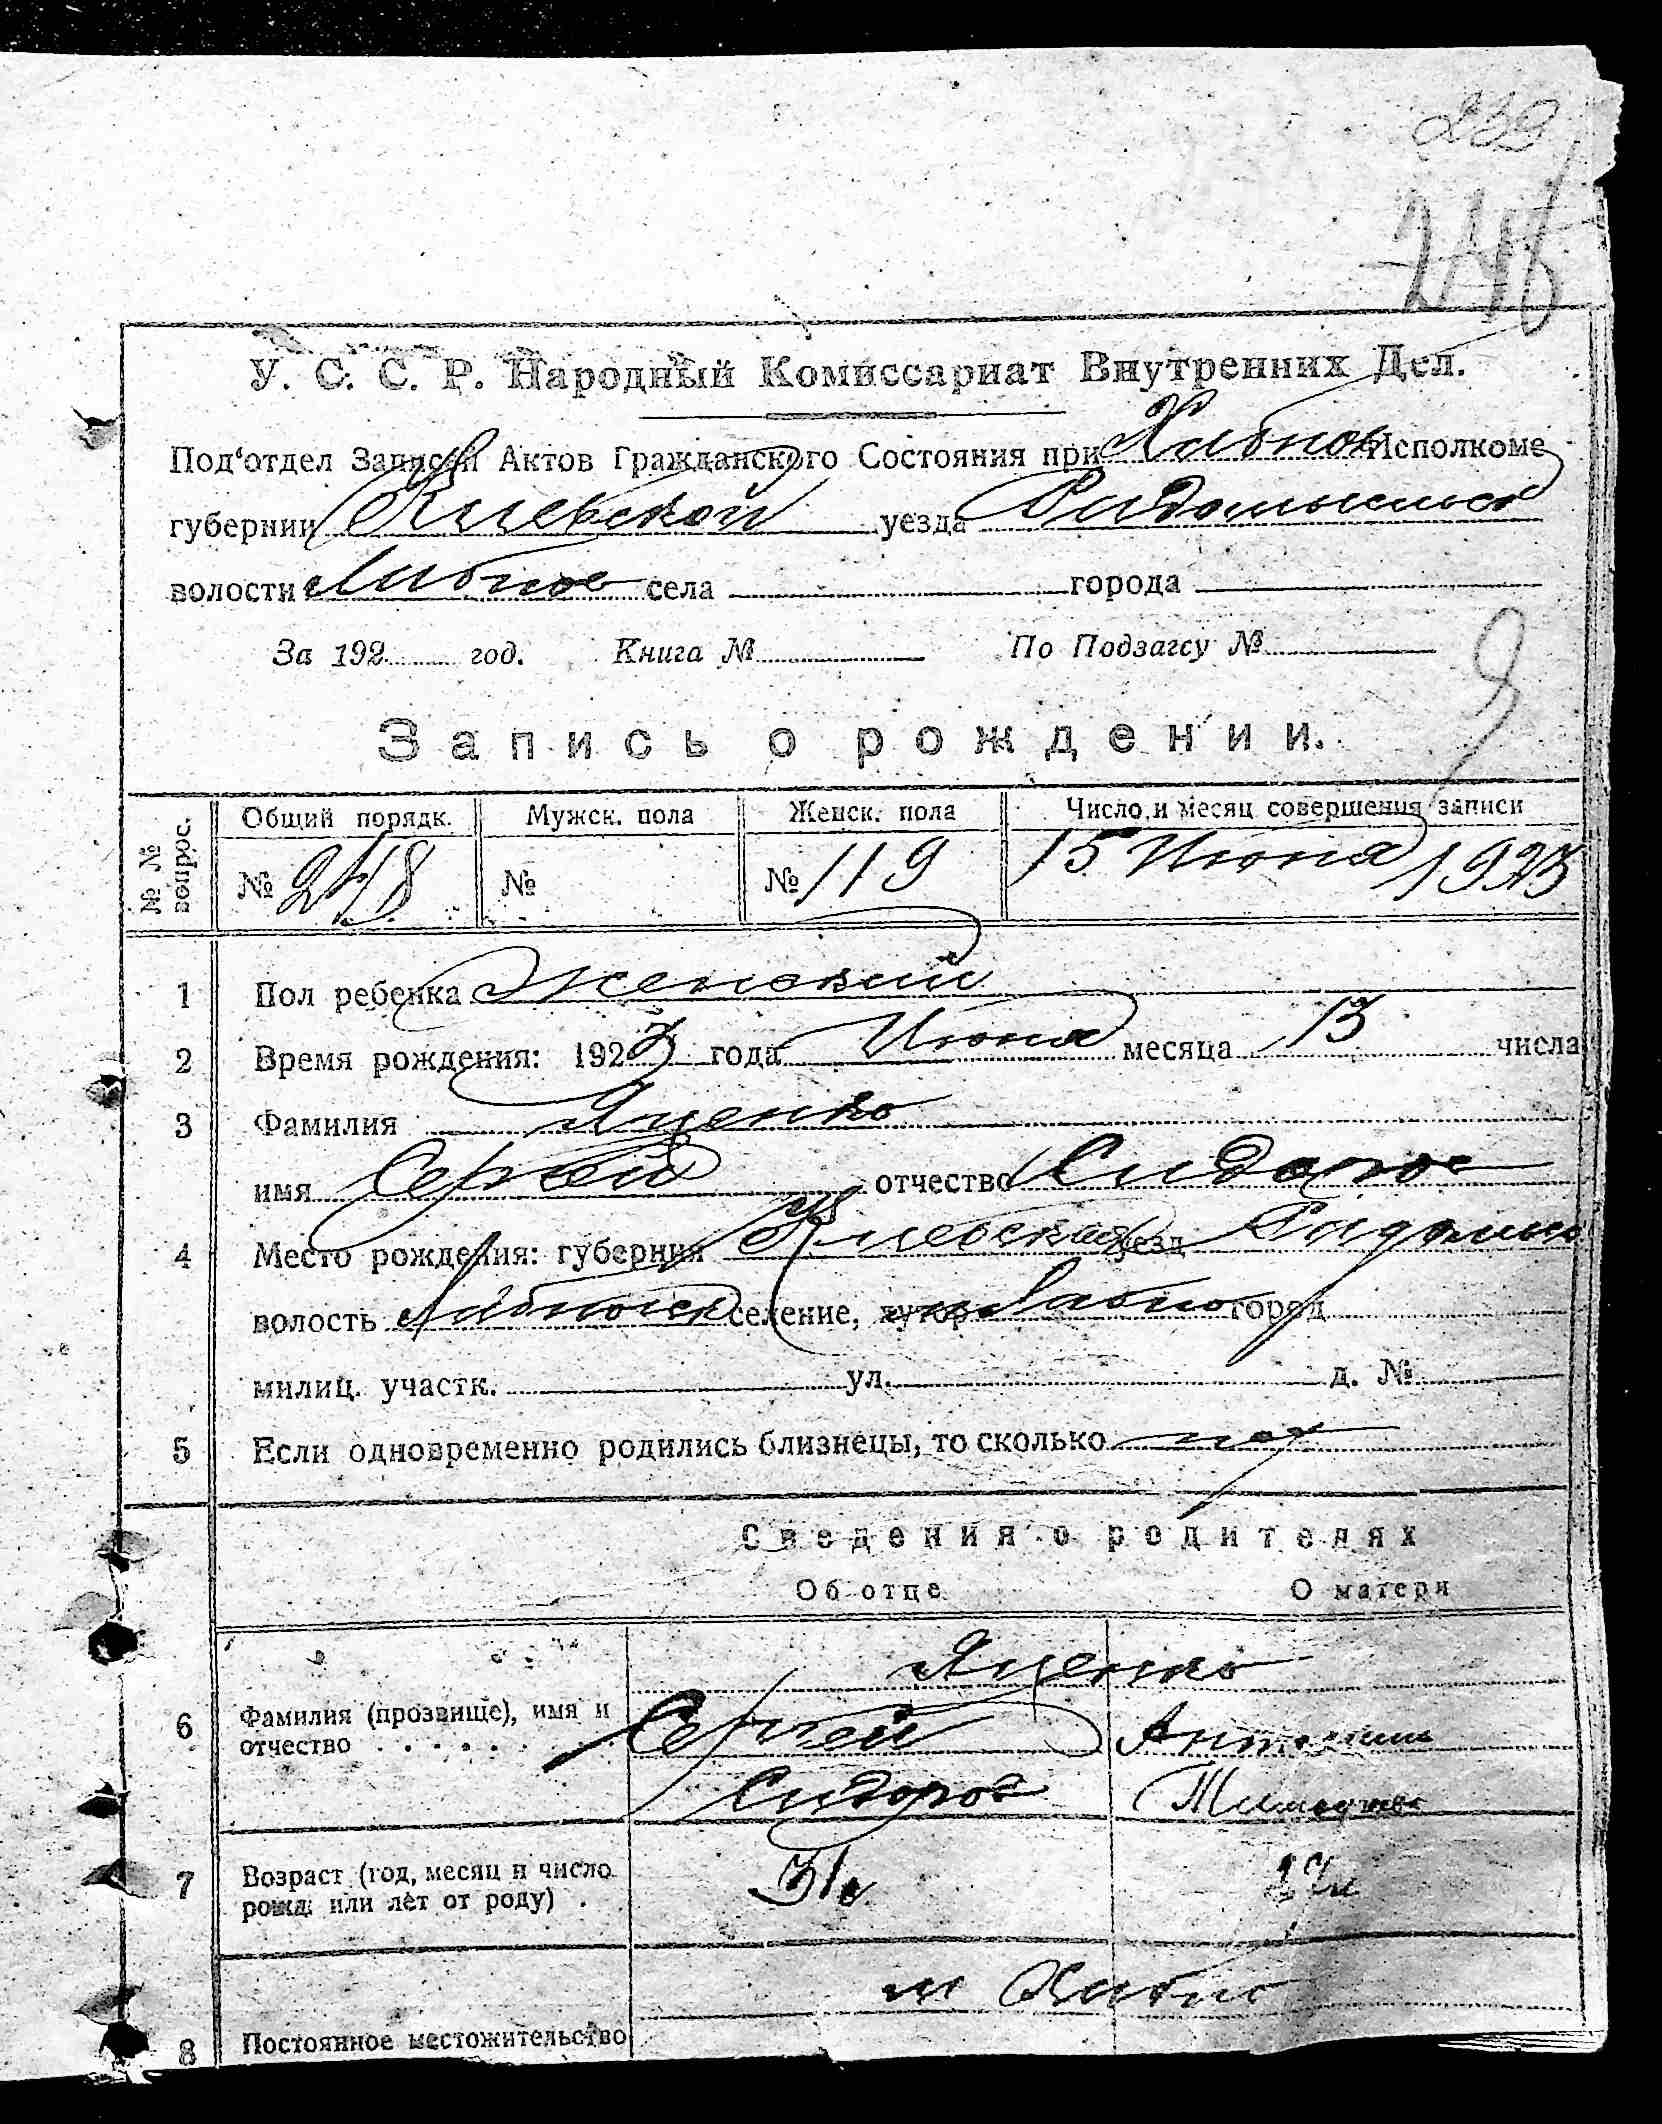 239
У. С. С. Р. Народный Комиссариат Внутренних Дел.
Под‘отдел Записи Актов Гражданского Состояния при Хабнов Исполкоме
губернии Киевской уезда Радомысльск
волости Хабнов села города
За 192 год. Книга № По Подзагсу №
Запись о рождении.
№ № вопрос. Общий порядк. Мужск. пола Женск. пола Число и месяц совершения записи
№ 248 № № 119 15 Июня 1923
1 Пол ребенка Женский
2 Время рождения: 1923 года Июня месяца 13 числа
3 Фамилия Яценко
имя Сергей отчество Сидоров
4 Место рождения: губерния Киевская уезд Радомысл
волость Хабновск селение, хутор Хабно город
милиц. участк. ул. д. №
5 Если одновременно родились близнецы, то сколько
Сведения о родителях
Об отце О матери
Яценко
6 Фамилия (прозвище), имя и отчество Сергей Антонина
Сидоров Тимофеева
7 Возраст (год, месяц и число рожд. или лет от роду) 31 27
м Хабно
8 Постоянное местожительство